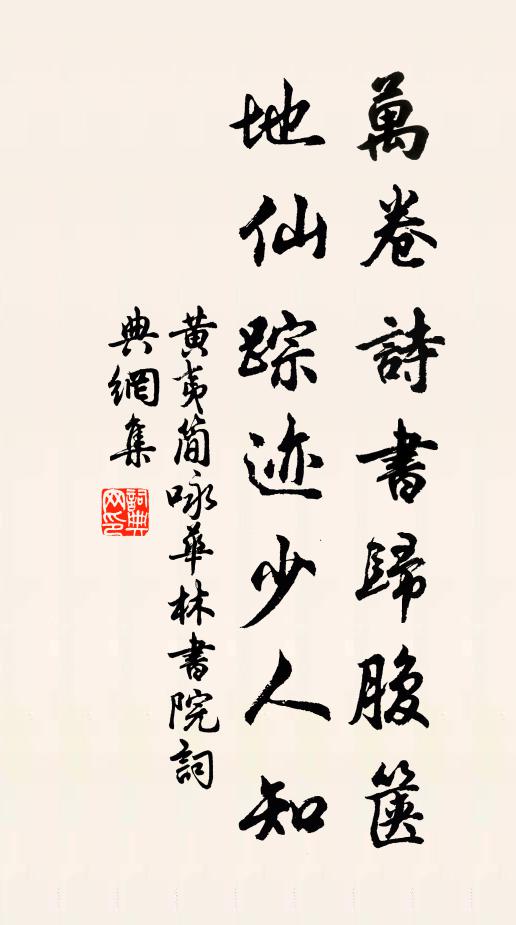 萬卷詩書歸腹篋
地仙踪迹少人知
黄夷简咏華林書院詞
典網集
詞典
网印